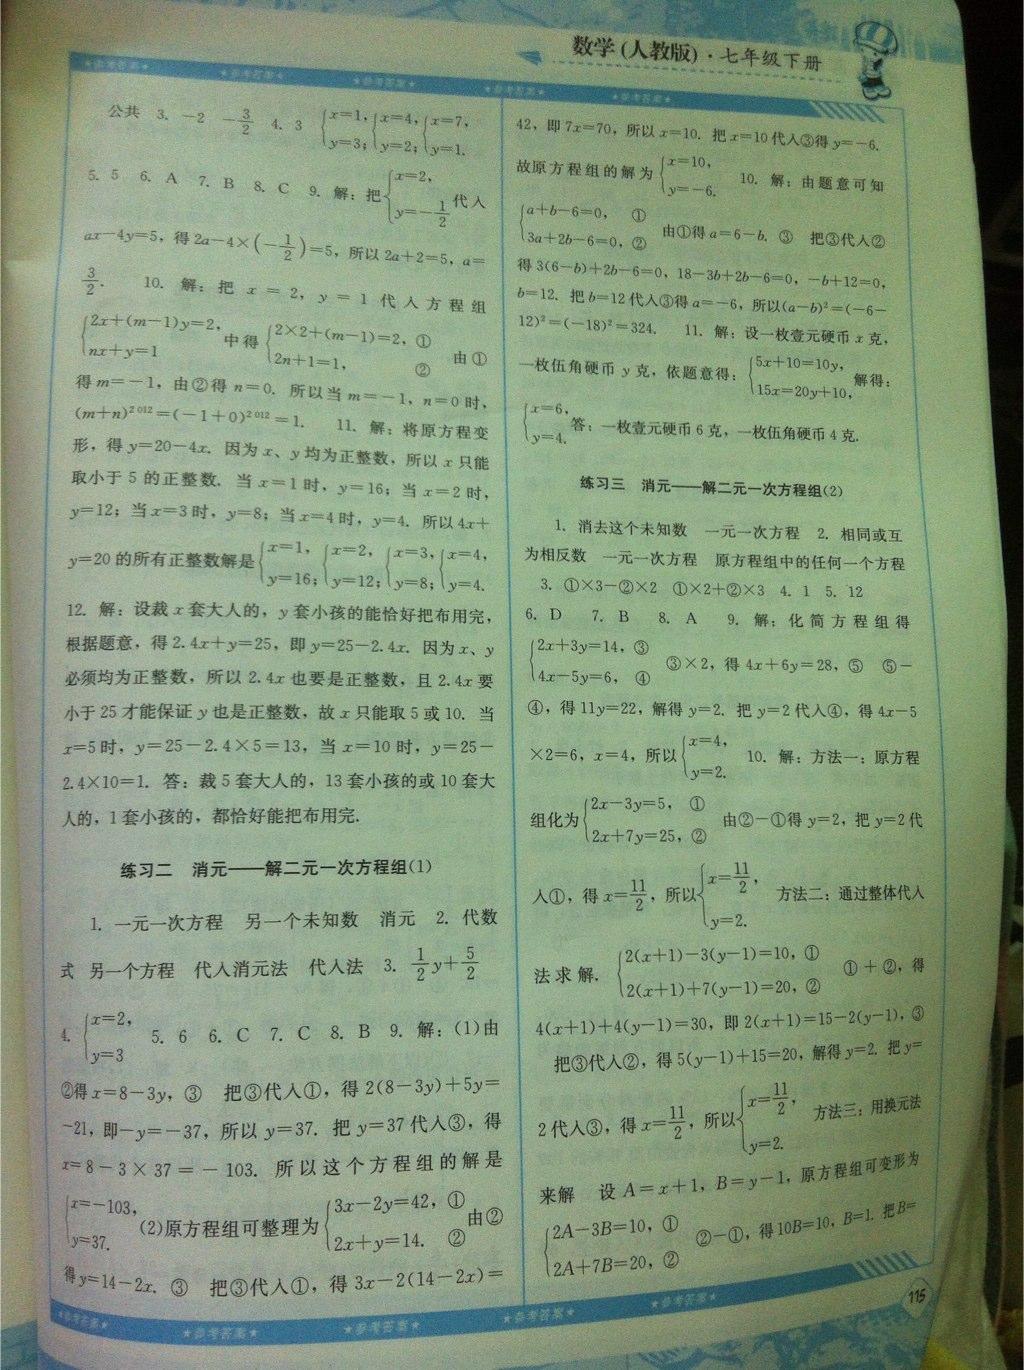 数学(人教版)·七年级下册
★参考答案★ ★参考答案★ ★参考答案★ ★参考答案★ ★参考答案★
公共 3. －2 －3/2 4. 3 {x=1, y=3; {x=4, y=2; {x=7, y=1.
5. 5 6. A 7. B 8. C 9. 解：把{x=2, y=－1/2 代入
ax－4y=5，得2a－4×(－1/2)=5，所以2a+2=5，a=
3/2. 10. 解：把 x＝2，y＝1 代入方程组
{2x+(m－1)y=2, nx+y=1 中得 {2×2+(m－1)=2，① 2n+1=1， ② 由①
得m=－1，由②得n=0. 所以当m=－1，n=0时，
(m+n)^2012=(－1+0)^2012=1. 11. 解：将原方程变
形，得y=20－4x. 因为x、y均为正整数，所以x只能
取小于5的正整数. 当x=1时，y=16；当x=2时，
y=12；当x=3时，y=8；当x=4时，y=4. 所以4x+
y=20的所有正整数解是{x=1, y=16; {x=2, y=12; {x=3, y=8; {x=4, y=4.
12. 解：设裁x套大人的，y套小孩的能恰好把布用完，
根据题意，得2.4x+y=25，即y=25－2.4x. 因为x、y
必须均为正整数，所以2.4x也要是正整数，且2.4x要
小于25才能保证y也是正整数，故x只能取5或10. 当
x=5时，y=25－2.4×5=13，当x=10时，y=25－
2.4×10=1. 答：裁5套大人的，13套小孩的或10套大
人的，1套小孩的，都恰好能把布用完.
练习二 消元——解二元一次方程组(1)
1. 一元一次方程 另一个未知数 消元 2. 代数
式 另一个方程 代入消元法 代入法 3. 1/2y+5/2
4. {x=2, y=3 5. 6 6. C 7. C 8. B 9. 解：(1)由
②得x=8－3y，③ 把③代入①，得2(8－3y)+5y=
－21，即－y=－37，所以y=37. 把y=37代入③，得
x=8－3×37=－103. 所以这个方程组的解是
{x=－103, y=37. (2)原方程组可整理为{3x－2y=42，① 2x+y=14. ② 由②
得y=14－2x. ③ 把③代入①，得3x－2(14－2x)=
42，即7x=70，所以x=10. 把x=10代入③得y=－6.
故原方程组的解为{x=10, y=－6. 10. 解：由题意可知
{a+b－6=0， ① 3a+2b－6=0，② 由①得a=6－b. ③ 把③代入②
得3(6－b)+2b－6=0，18－3b+2b－6=0，－b+12=0，
b=12. 把b=12代入③得a=－6，所以(a－b)²=(－6－
12)²=(－18)²=324. 11. 解：设一枚壹元硬币x克，
一枚伍角硬币y克，依题意得：{5x+10=10y, 15x=20y+10, 解得：
{x=6, y=4. 答：一枚壹元硬币6克，一枚伍角硬币4克.
练习三 消元——解二元一次方程组(2)
1. 消去这个未知数 一元一次方程 2. 相同或互
为相反数 一元一次方程 原方程组中的任何一个方程
3. ①×3－②×2 ①×2+②×3 4. 1 5. 12
6. D 7. B 8. A 9. 解：化简方程组得
{2x+3y=14，③ 4x－5y=6， ④ ③×2，得4x+6y=28，⑤ ⑤－
④，得11y=22，解得y=2. 把y=2代入④，得4x－5
×2=6，x=4，所以{x=4, y=2. 10. 解：方法一：原方程
组化为{2x－3y=5， ① 2x+7y=25，② 由②－①得y=2，把y=2代
入①，得x=11/2，所以{x=11/2, y=2. 方法二：通过整体代入
法求解. {2(x+1)－3(y－1)=10，① 2(x+1)+7(y－1)=20，② ①+②，得
4(x+1)+4(y－1)=30，即2(x+1)=15－2(y－1)，③
把③代入②，得5(y－1)+15=20，解得y=2. 把y=
2代入③，得x=11/2，所以{x=11/2, y=2. 方法三：用换元法
来解 设A=x+1，B=y－1，原方程组可变形为
{2A－3B=10，① 2A+7B=20，② ②－①，得10B=10，B=1. 把B=
★参考答案★ ★参考答案★ ★参考答案★ ★参考答案★ ★参考答案★
115